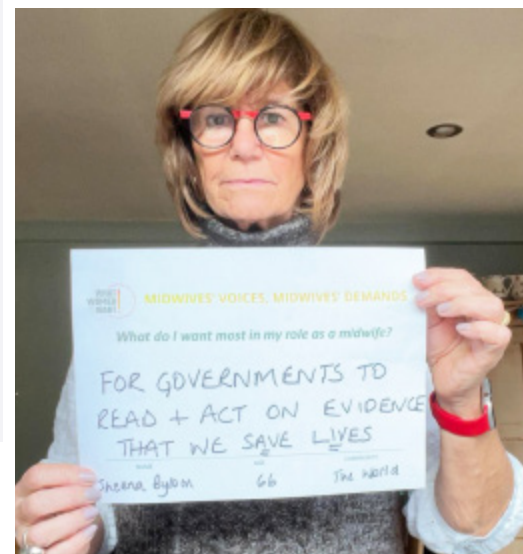 WHAT
WOMEN
WANT
MIDWIVES' VOICES, MIDWIVES' DEMANDS
What do I want most in my role as a midwife?
FOR GOVERNMENTS TO
READ + ACT ON EVIDENCE
THAT WE SAVE LIVES
NAME AGE
Sheena Byrom 66 The World